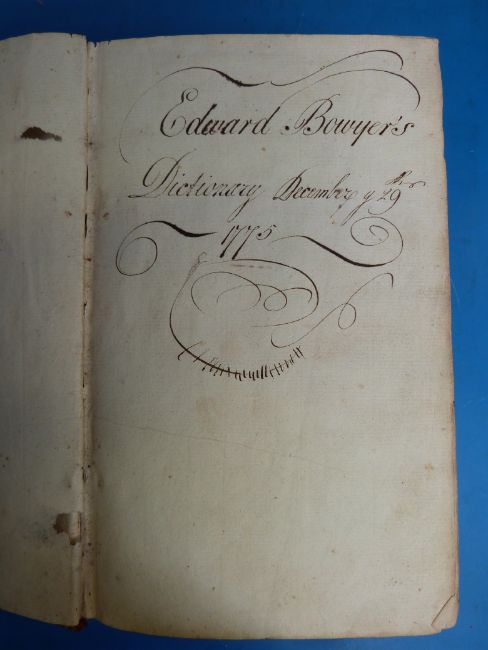 Edward Bowyer's
Dictionary December y 29th
1775